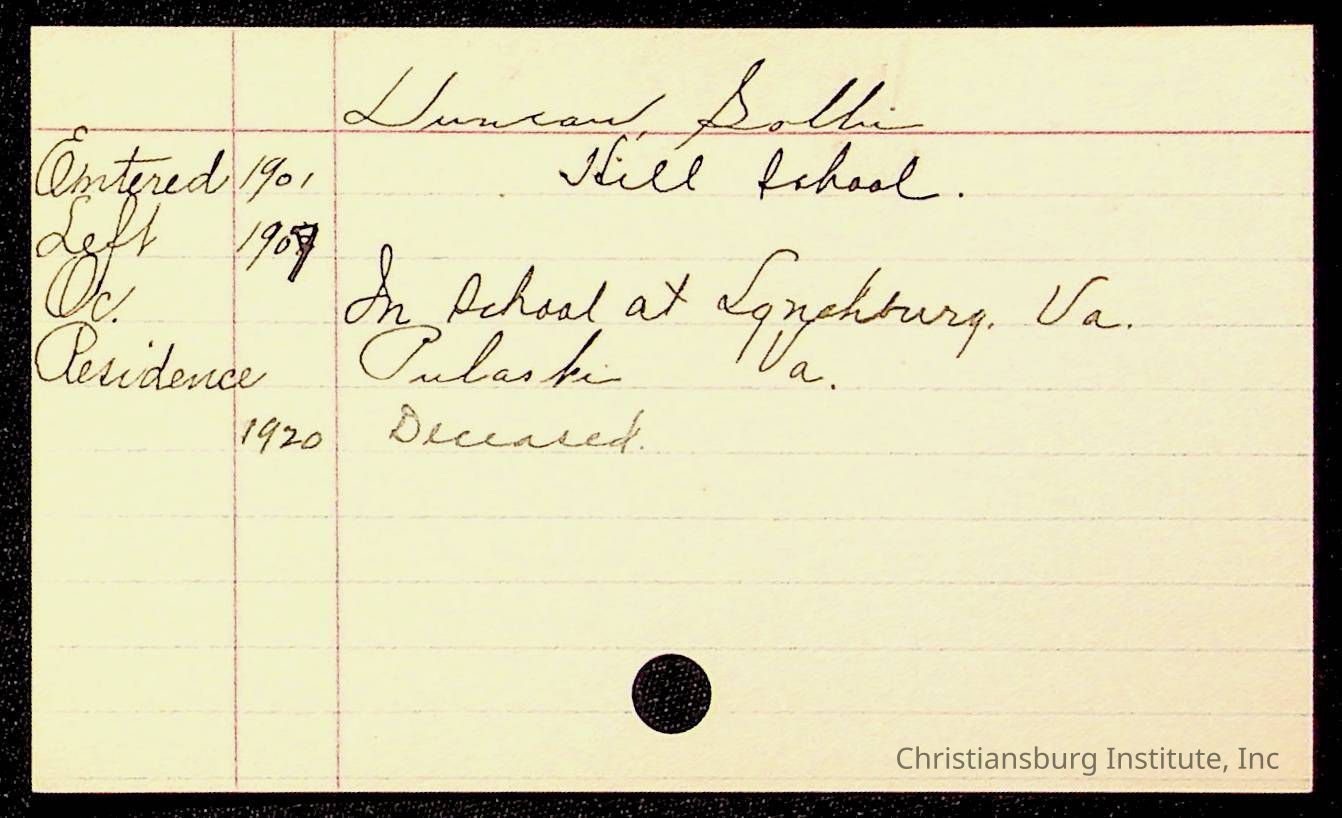 Duncan, Sollie
Entered 1901 Hill School.
Left 1907
Oc. In School at Lynchburg. Va.
Residence Pulaski Va.
1920 Deceased.
Christiansburg Institute, Inc